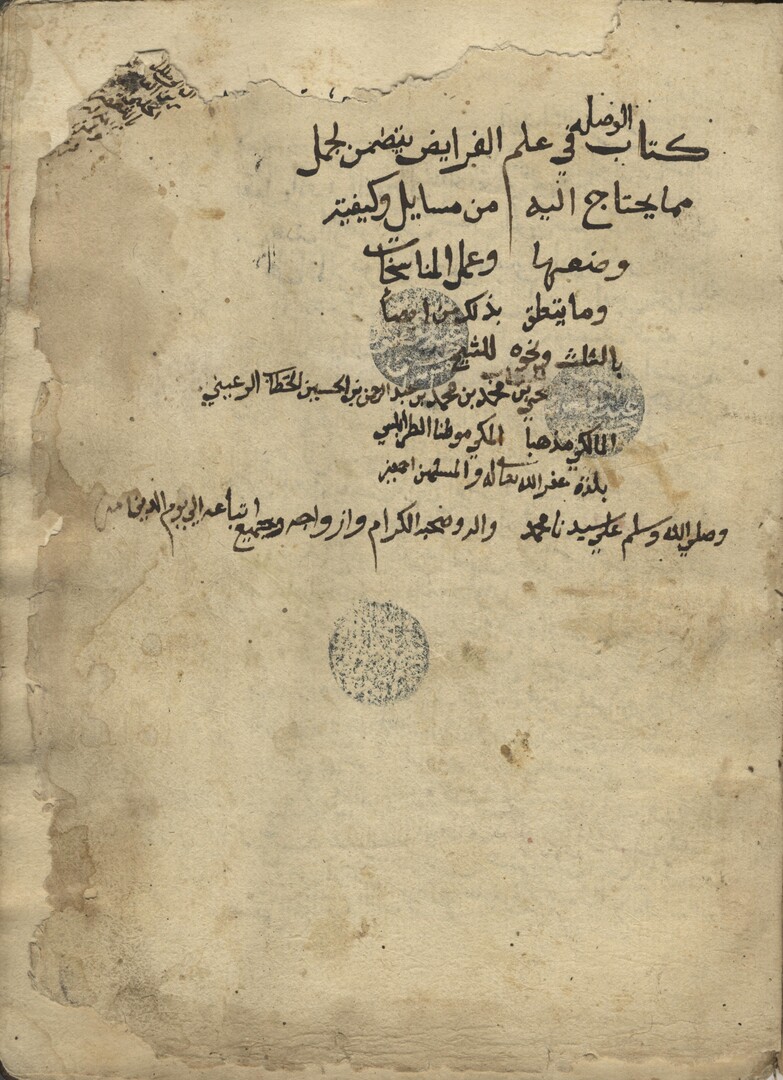 كتاب الوصله في علم الفرايض يتضمن لجمل
مما يحتاج اليه من مسايل وكيفية
وضعها وعمل المناسخات
وما يتعلق بذلك من
بالثلث ونحوه للشيخ
يحيى بن محمد بن محمد بن عبد الرحمن بن الحسين الحطاب الرعيني
المالكي مذهبا المكي موطنا الطرابلسي
بلدة غفر الله تعالى له والمسلمين اجمعين
وصلي الله وسلم علي سيدنا محمد واله وصحبه الكرام وازواجه وجميع اتباعه الي يوم الدين امين